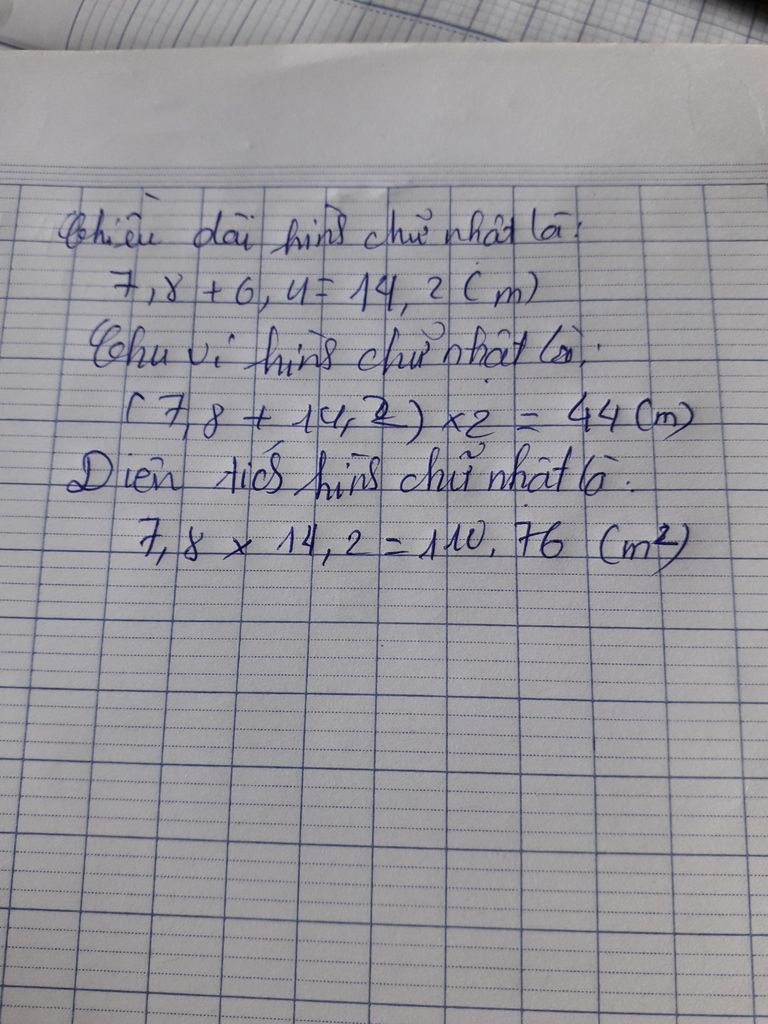 Chiều dài hình chữ nhật là:
7,8 + 6,4 = 14,2 (m)
Chu vi hình chữ nhật là:
(7,8 + 14,2) x 2 = 44 (m)
Diện tích hình chữ nhật là:
7,8 x 14,2 = 110,76 (m²)